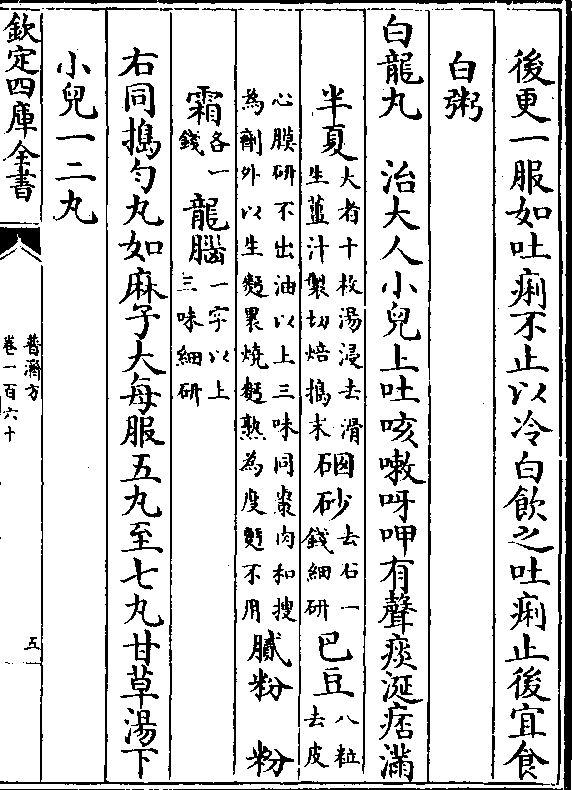 後更一服如吐痢不止以冷白飲之吐痢止後宜食
白粥
白龍丸　治大人小兒上吐咳嗽呀呷有聲痰涎痞滿
半夏大者十枚湯浸去滑生薑汁製切焙搗末硇砂去石一錢細研巴豆八粒去皮
心膜研不出油以上三味同棗肉和搜為劑外以生麪裹燒麪熟為度麪不用膩粉　粉
霜各一錢龍腦一字以上三味細研
右同搗勻丸如麻子大每服五丸至七丸甘草湯下
小兒一二丸
欽定四庫全書
普濟方
卷一百六十
五